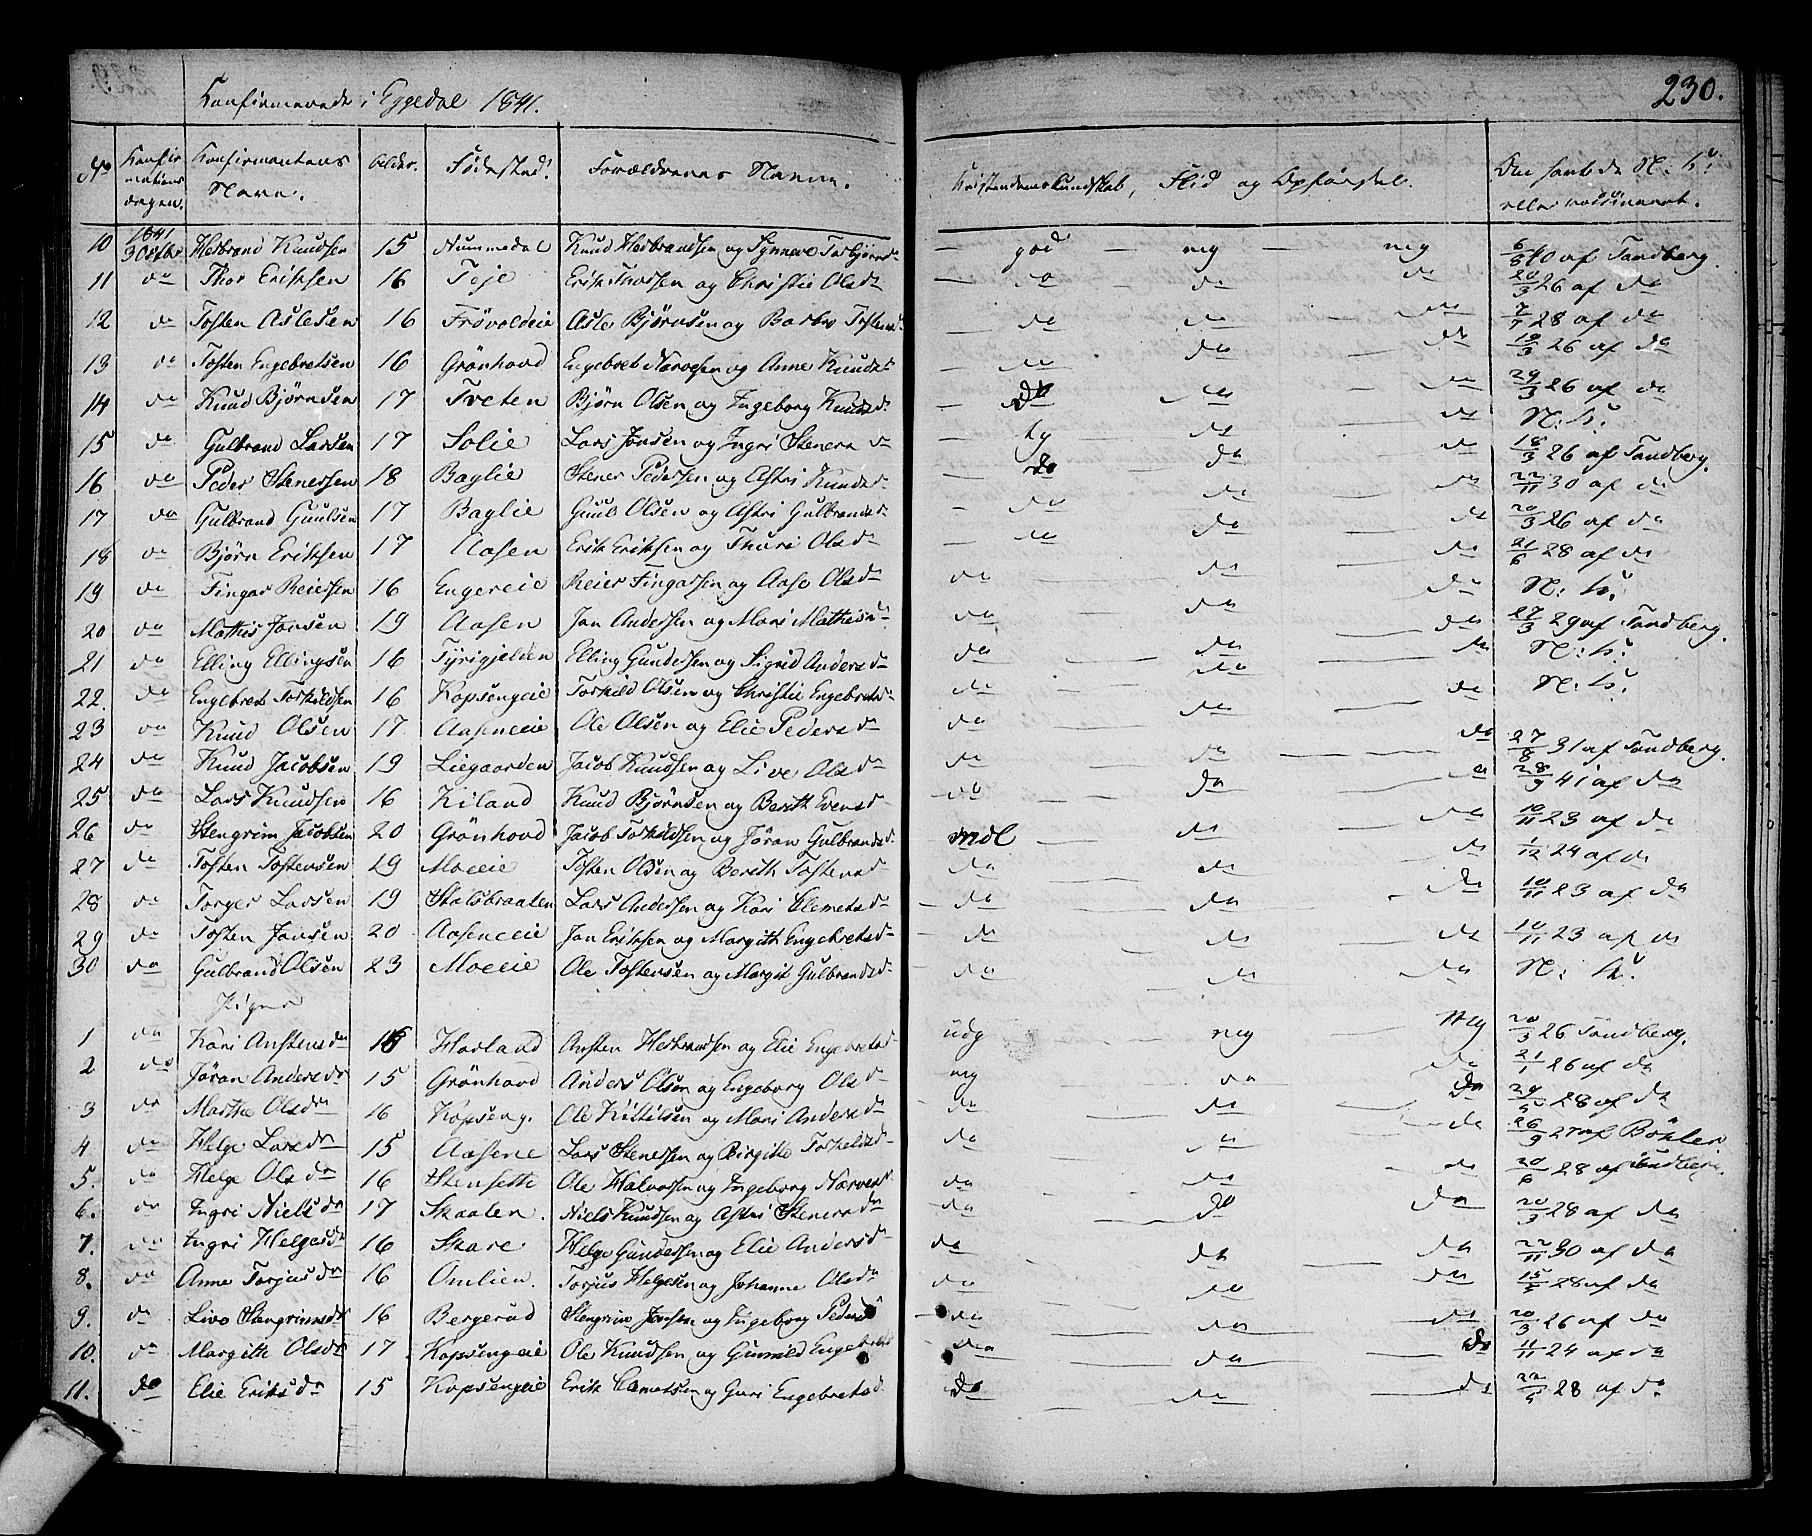 Konfirmerede i Eggedal 1841.
230.
No Konfirmationsdagen. Konfirmantens Navn. Alder. Fødested. Forældrenes Navne. Kristendomskundskab, Flid og Opførsel. Den havte de N: K: eller vaccineret.
10 1841 30 Octbr Herbrand Knudsen 15 Nummedal Knud Herbrandsen og Synneve Torbjørnsd — god — mg — mg 6/8 40 af Tandberg.
11 do Thor Eriksen 16 Teje Erik Thorsen og Christie Olsdr — do do do 20/3 26 af do
12 do Tosten Aslesen 16 Frövoldeie Asle Björnsen og Barbro Tostensd. — do do do 28 af do
13 do Tosten Engebretsen 16 Grönhovd Engebret Narvesen og Anne Knudsd — do do — do 19/3 26 af do
14 do Knud Björnsen 17 Tveten Björn Olsen og Ingeborg Knudsd. — do do — do 29/3 26 af do
15 do Gulbrand Larsen 17 Solie Lars Jonsen og Ingri Stenersd — tg do do N: K:
16 do Peder Stenersen 18 Baglie Stener Pedersen og Astri Knudsd — do — do — do 18/3 26 af Tandberg.
17 do Gulbrand Guulsen 17 Baglie Guul Olsen og Astri Gulbrandsd — do do do 22/11 30 af do
18 do Björn Eriksen 17 Aasen Erik Eriksen og Thuri Olsdr — do do do 20/3 26 af do
19 do Fingar Reiersen 16 Engereie Reier Fingarsen og Aase Olsdr do — do do 21/6 28 af do
20 do Mathis Jonsen 19 Aasen Jon Andersen og Mari Mathisd do — do — do N: K:
21 do Elling Ellingsen 16 Tyrigjelden Elling Gundersen og Sigrid Andersd do — do — do 27/3 29 af Tandberg.
22. do Engebret Torkildsen 16 Kopsengeie Torkild Olsen og Christie Engebretsd do — do — do N: K:
23 do Knud Olsen 17 Aaseneeie Ole Olsen og Elie Pedersd do — do — do N: K:
24 do Knud Jacobsen 19 Liegaarden Jacob Knudsen og Live Olsdr do — do — do 27/8 31 af Tandberg.
25 do Lars Knudsen 16 Kiland Knud Björnsen og Berith Evensd do — do — do 28/9 41 af do
26 do Stengrim Jacobsen 20 Grönhovd Jacob Torkildsen og Jöran Gulbrandsd mdl do — do 10/11 23 af do
27 do Tosten Tostensen 19 Moeeie Tosten Olsen og Berith Tostensd do — do — do 1/12 24 af do
28 do Torger Larsen 19 Stalsbraaten Lars Andersen og Kari Clemetsd — do — do — do 10/11 23 af do
29 do Tosten Jonsen 20 Aaseneeie Jon Eriksen og Margith Engebretsd — do — do — do 10/11 23 af do
30 do Gulbrand Olsen 23 Moeeie Ole Tostensen og Margit Gulbrandsd do — do — do N: K:
Piger
1 do Kari Anstensdr 16 Horland Ansten Herbrandsen og Elie Engebretsd udg mg — mg 20/3 26 Tandberg.
2 do Jöran Andersdr 15 Grönhovd Anders Olsen og Engeborg Olsd mg — do — do 21/1 26 af do
3 do Marthe Olsdr 16 Kopseng. Ole Kittilsen og Mari Andersdr — do — do — do 28 af do
4 do Helge Larsdr 15 Aasene Lars Stenersen og Birgitte Torkelsd do — do — do 26/9 27 af Böhler
5. do Helge Olsdr 16 Stensette Ole Halvorsen og Ingeborg Narvesd do — do — do 20/6 28 af Tandberg.
6. do Ingri Nielsdr 17 Skaaten. Niels Knudsen og Astri Stenersdr — do — do do 20/3 28 af do
7. do Ingri Helgesdr 16 Skare Helge Gundersen og Elie Andersd do — do — do 22/11 30 af do
8. do Anne Torjusdr 16 Omlien. Torjus Helgesen og Johanne Olsdr — do — do — do 28 af do
9. do Live Stengrimsdr 16 Bergerud Stengrim Jonsen og Ingeborg Pedersd — do — do do 20/3 26 af do
10. do Margitte Olsdr 17 Kopsengeie Ole Knudsen og Gunnild Engebretsd — do — do — do 11/11 24 af do
11. do Elie Eriksdr 15 Kopsengeie Erik Clemetsen og Guri Engebretsd do — do — do 28 af do